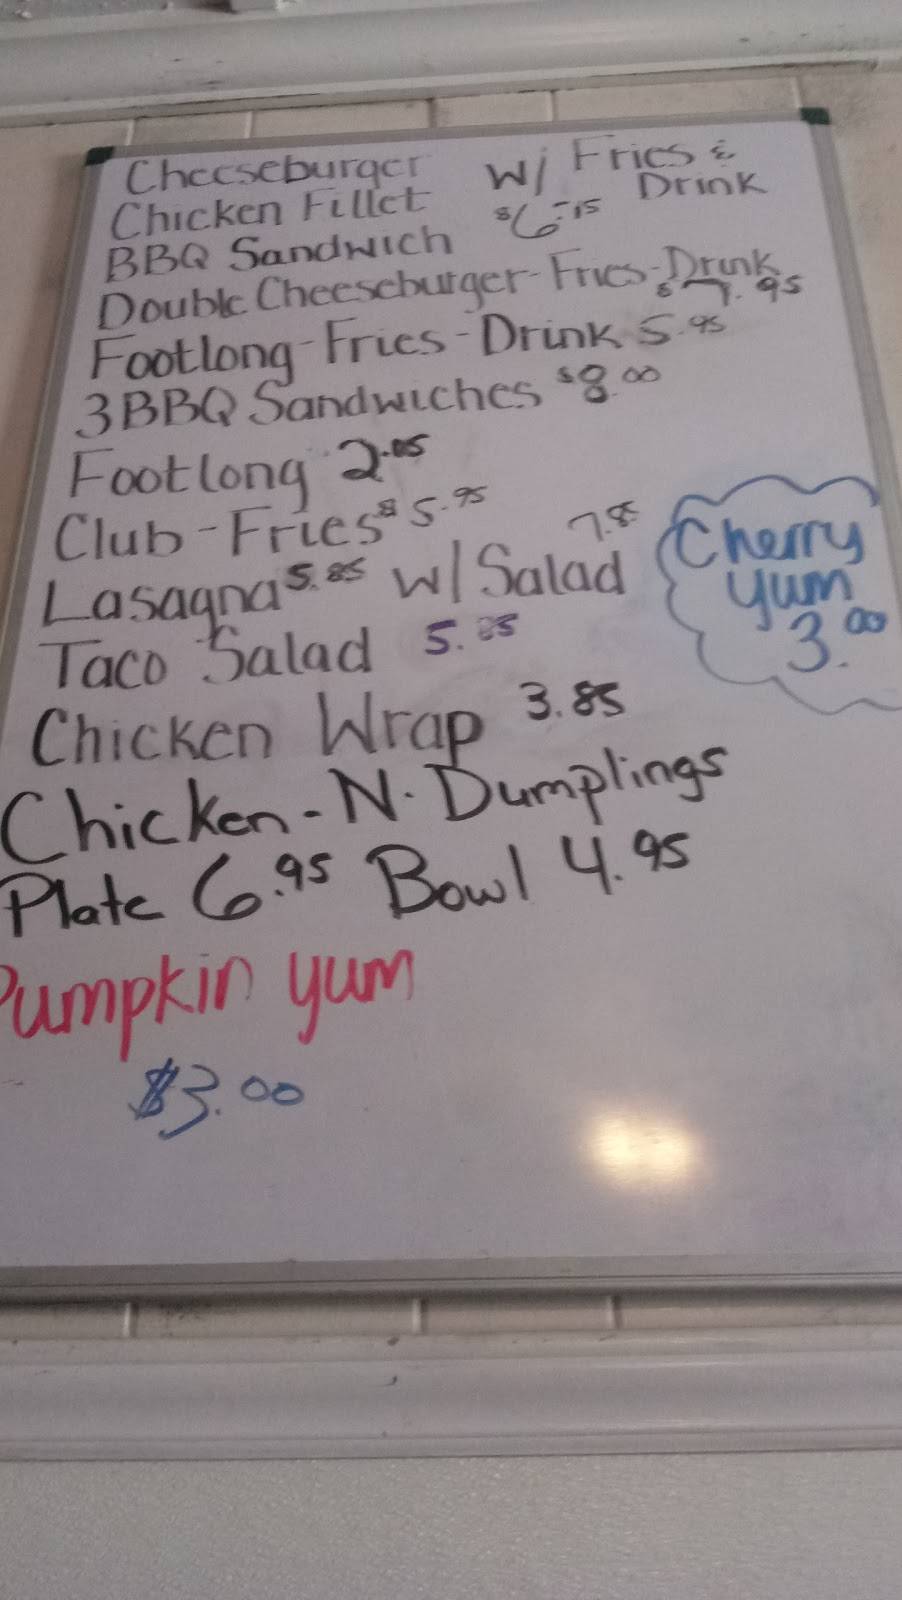 Cheeseburger W/ Fries &
Chicken Fillet $6.15 Drink
BBQ Sandwich
Double Cheeseburger-Fries-Drink
$7.95
Footlong-Fries-Drink 5.95
3 BBQ Sandwiches $8.00
Footlong
Club-Fries $5.95
Lasagna 5.85 W/ Salad 7.85
Taco Salad
Chicken Wrap 3.85
Chicken-N-Dumplings
Plate 6.95 Bowl 4.95
Pumpkin yum
$3.00
Cherry
yum
3.00